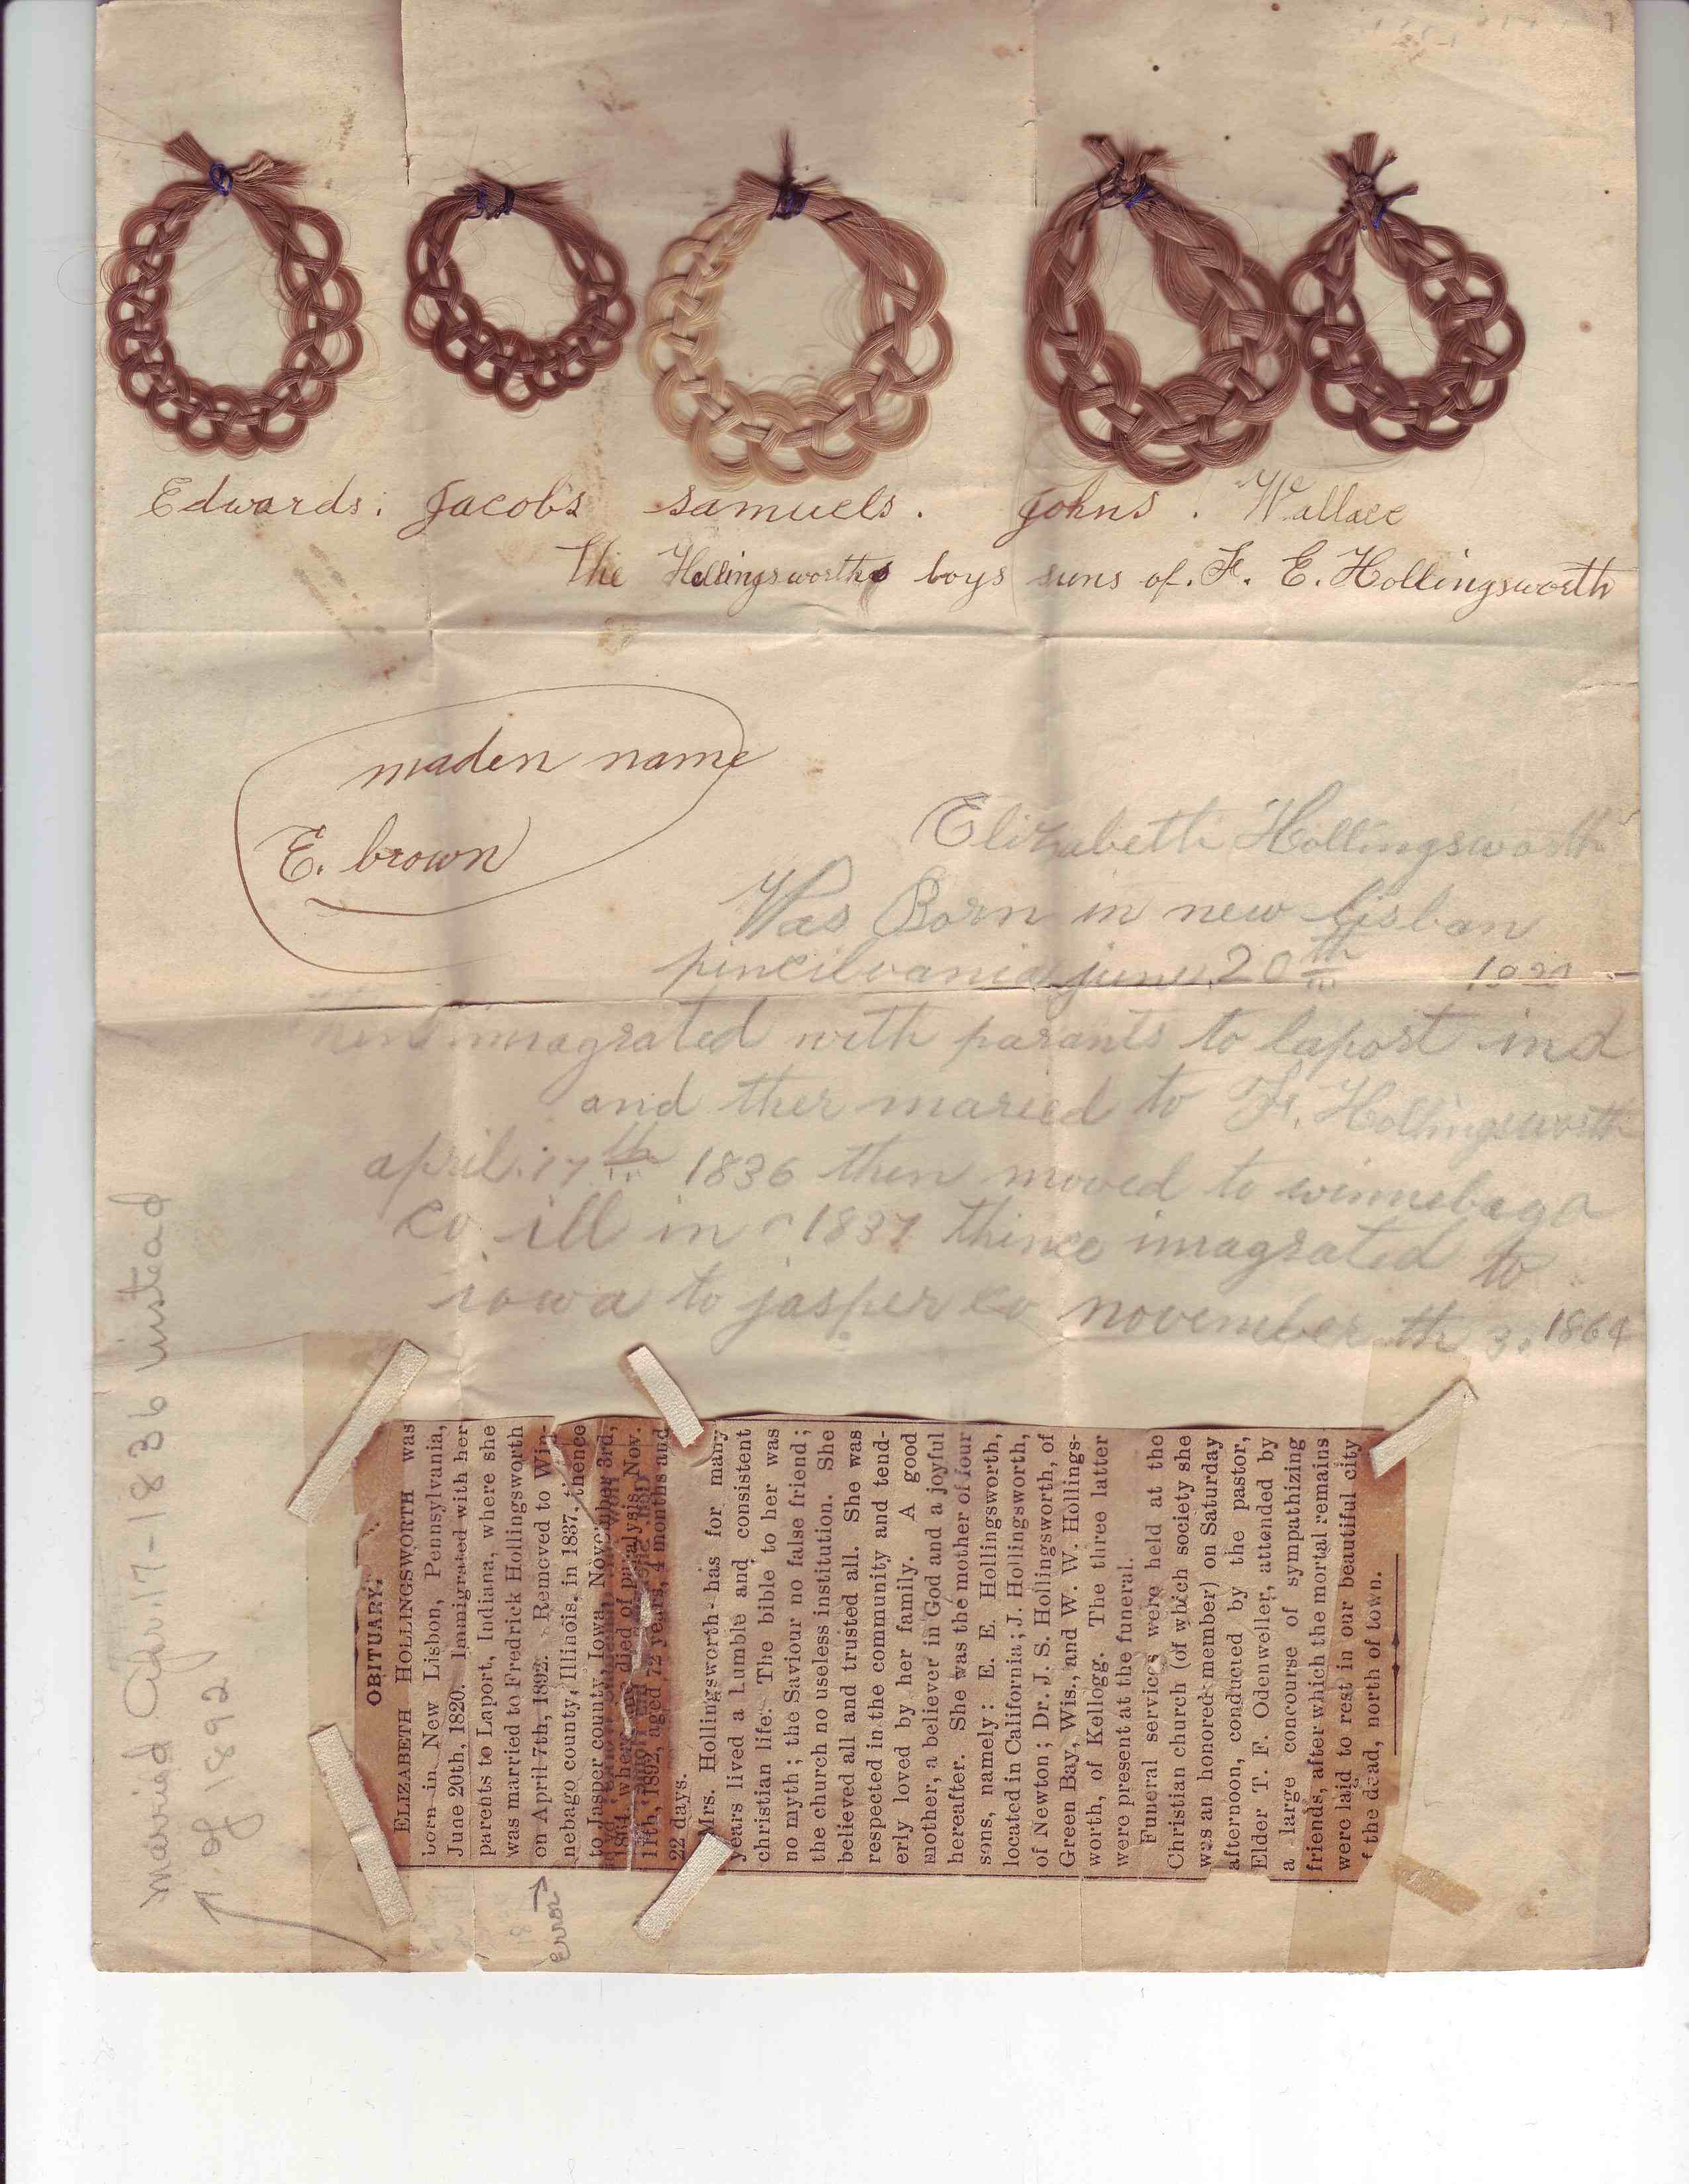 Edwards. Jacobs samuels. johns. Wallace
The Hollingsworths boys suns of. F. E. Hollingsworth
maden name
E. brown
Elizabeth Hollingsworth
Was Born in new lisban
pincilvania june 20th
imagrated with parants to laport ind
and ther maried to F. Hollingsworth
april. 17th 1836 then moved to winnebago
co ill in 1837 thince imagrated to
iowa to jasper co november th 3. 1864
married Apr. 17-1836 instead
of 1892
Error
OBITUARY.
ELIZABETH HOLLINGSWORTH was
born in New Lisbon, Pennsylvania,
June 20th, 1820. Immigrated with her
parents to Laport, Indiana, where she
was married to Fredrick Hollingsworth
on April 7th, 1892. Removed to Win-
nebago county, Illinois, in 1837, thence
to Jasper county, Iowa, November 3rd,
1864, where died of paralysis, Nov.
11th, 1892, aged 72 years, 4 months and
22 days.
Mrs. Hollingsworth has for many
years lived a Lumble and consistent
christian life. The bible to her was
no myth; the Saviour no false friend;
the church no useless institution. She
believed all and trusted all. She was
respected in the community and tend-
erly loved by her family. A good
mother, a believer in God and a joyful
hereafter. She was the mother of four
sons, namely: E. E. Hollingsworth,
located in California; J. Hollingsworth,
of Newton; Dr. J. S. Hollingsworth, of
Green Bay, Wis., and W. W. Hollings-
worth, of Kellogg. The three latter
were present at the funeral.
Funeral services were held at the
Christian church (of which society she
was an honored member) on Saturday
afternoon, conducted by the pastor,
Elder T. F. Odenweller, attended by
a large concourse of sympathizing
friends, after which the mortal remains
were laid to rest in our beautiful city
f the dead, north of town.